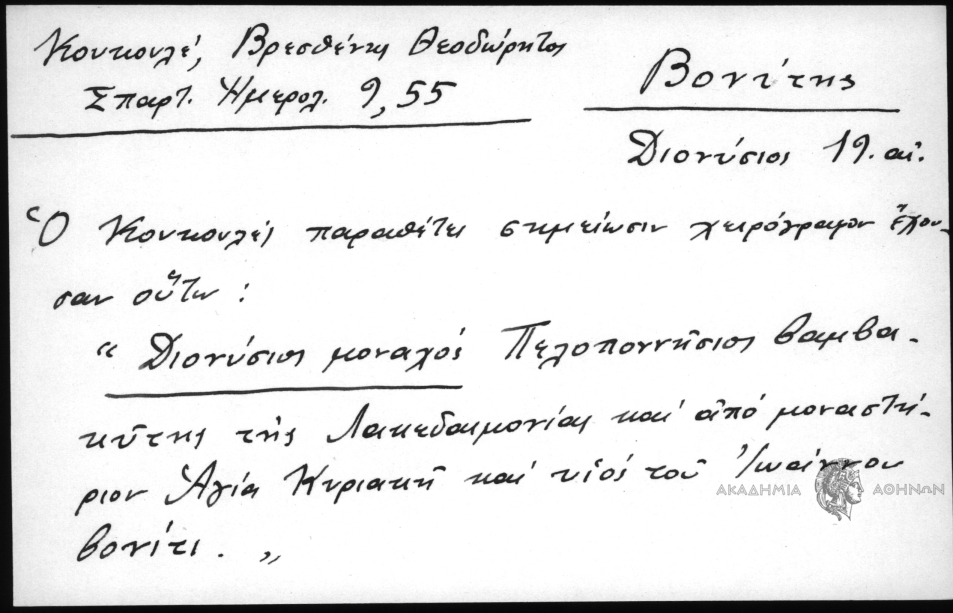 Κουκουλέ, Βρεσθένης Θεοδώρητος
Σπαρτ. Ημερολ. 9,55
Βονίτης
Διονύσιος 19. αἰ.
Ὁ Κουκουλές παραθέτει σημείωσιν χειρόγραφον ἔχου-
σαν οὕτω :
“ Διονύσιος μοναχός Πελοποννήσιος βαμβα-
κύτης τῆς Λακεδαιμονίας καί ἀπό μοναστή-
ριον Ἁγία Κυριακῆ καί υἱός τοῦ Ἰωάννου
βονίτι. „
ΑΚΑΔΗΜΙΑ ΑΘΗΝΩΝ